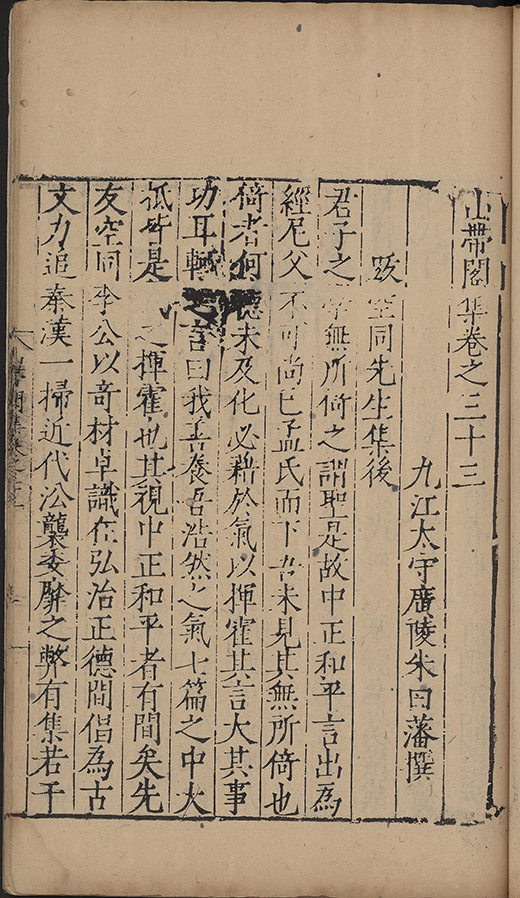 山帶閣集卷之三十三
九江太守廣陵朱曰藩撰
跋空同先生集後
君子之學無所倚之謂聖是故中正和平言出為
經尼父不可尚已孟氏而下吾未見其無所倚也
倚者何德未及化必藉於氣以揮霍其言大其事
功耳軻言曰我善養吾浩然之氣七篇之中大
抵皆是之揮霍也其視中正和平者有間矣先
友空同李公以奇材卓識在弘治正德間倡為古
文力追秦漢一掃近代㳂襲委靡之弊有集若干